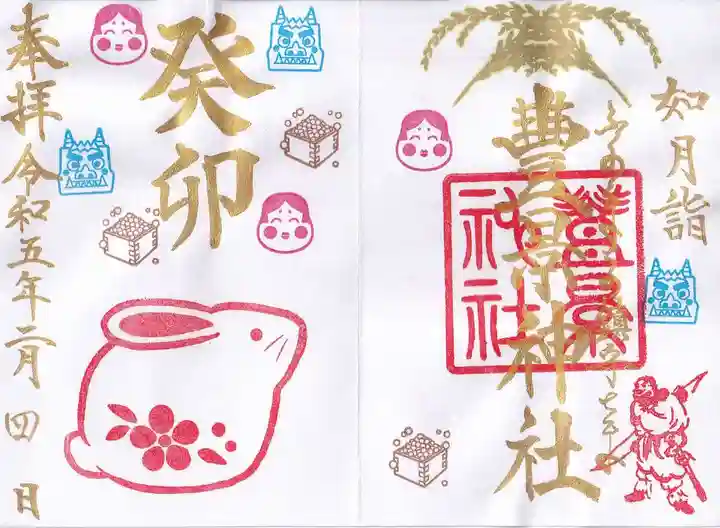 如月詣
豊景神社
豊景
神社
癸卯
奉拝 令和五年二月四日